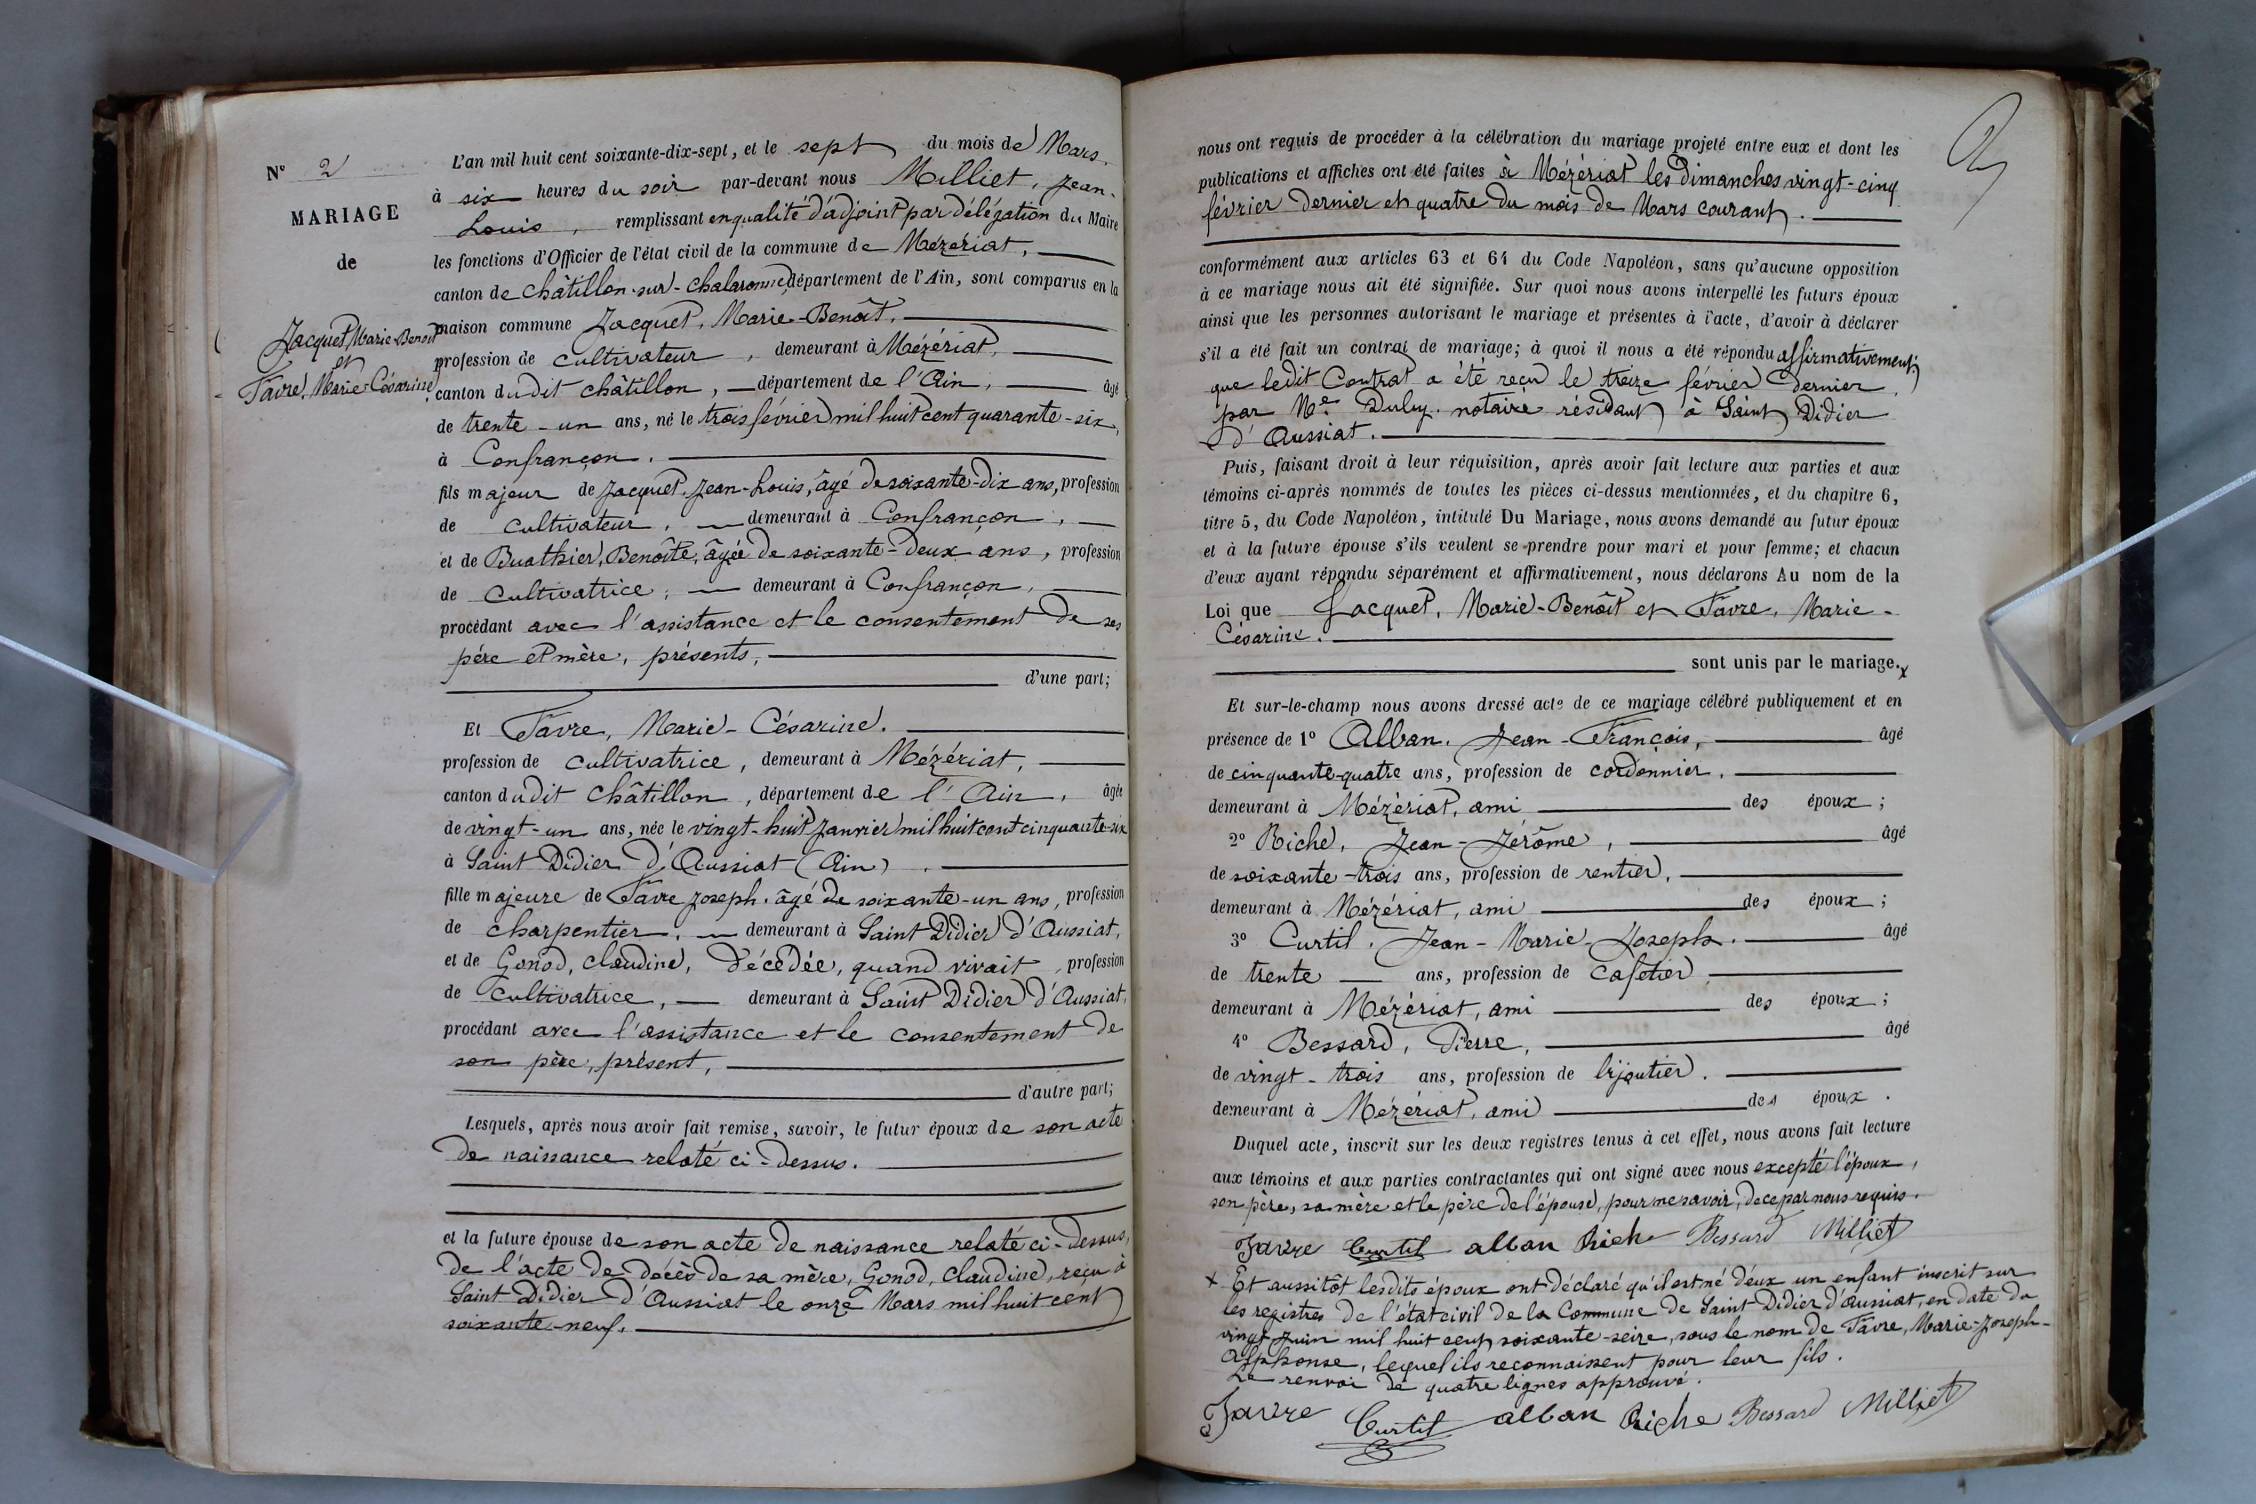 N° 2
MARIAGE
de
Jacquet, Marie-Benoit
et
Favre, Marie-Césarine
L'an mil huit cent soixante-dix-sept, et le sept du mois de Mars,
à six heures du soir par-devant nous Milliet, Jean-
Louis, remplissant en qualité d'adjoint par délégation du Maire
les fonctions d'Officier de l'état civil de la commune de Mézériat,
canton de Châtillon-sur-Chalaronne, département de l'Ain, sont comparus en la
maison commune Jacquet, Marie-Benoît,
profession de cultivateur, demeurant à Mézériat,
canton dudit Châtillon, département de l'Ain, âgé
de trente-un ans, né le trois février mil huit cent quarante-six,
à Confrançon.
fils majeur de Jacquet, Jean-Louis, âgé de soixante-dix ans, profession
de cultivateur, demeurant à Confrançon,
et de Buathier, Benoîte, âgée de soixante-deux ans, profession
de cultivatrice, demeurant à Confrançon,
procédant avec l'assistance et le consentement de ses
père et mère, présents,
d'une part;
Et Favre, Marie-Césarine.
profession de cultivatrice, demeurant à Mézériat,
canton dudit Châtillon, département de l'Ain, âgée
de vingt-un ans, née le vingt-huit Janvier mil huit cent cinquante-six
à Saint Didier d'Aussiat (Ain).
fille majeure de Favre Joseph, âgé de soixante-un ans, profession
de charpentier, demeurant à Saint Didier d'Aussiat,
et de Gonod, Claudine, décédée, quand vivait, profession
de cultivatrice, demeurant à Saint Didier d'Aussiat,
procédant avec l'assistance et le consentement de
son père, présent,
d'autre part;
Lesquels, après nous avoir fait remise, savoir, le futur époux de son acte
de naissance relaté ci-dessus.
et la future épouse de son acte de naissance relaté ci-dessus,
de l'acte de décès de sa mère, Gonod, Claudine, reçu à
Saint Didier d'Aussiat le onze Mars mil huit cent
soixante-neuf.
nous ont requis de procéder à la célébration du mariage projeté entre eux et dont les
publications et affiches ont été faites à Mézériat les Dimanches vingt-cinq
février dernier et quatre du mois de Mars courant.
conformément aux articles 63 et 64 du Code Napoléon, sans qu'aucune opposition
à ce mariage nous ait été signifiée. Sur quoi nous avons interpellé les futurs époux
ainsi que les personnes autorisant le mariage et présentes à l'acte, d'avoir à déclarer
s'il a été fait un contrat de mariage; à quoi il nous a été répondu affirmativement;
que ledit Contrat a été reçu le treize février dernier,
par Me Duby, notaire résidant à Saint Didier
d'Aussiat.
Puis, faisant droit à leur réquisition, après avoir fait lecture aux parties et aux
témoins ci-après nommés de toutes les pièces ci-dessus mentionnées, et du chapitre 6,
titre 5, du Code Napoléon, intitulé Du Mariage, nous avons demandé au futur époux
et à la future épouse s'ils veulent se prendre pour mari et pour femme; et chacun
d'eux ayant répondu séparément et affirmativement, nous déclarons Au nom de la
Loi que Jacquet, Marie-Benoît et Favre, Marie-
Césarine.
sont unis par le mariage. x
Et sur-le-champ nous avons dressé acte de ce mariage célébré publiquement et en
présence de 1° Alban, Jean-François, âgé
de cinquante-quatre ans, profession de cordonnier,
demeurant à Mézériat, ami des époux;
2° Riche, Jean-Jérôme, âgé
de soixante-trois ans, profession de rentier,
demeurant à Mézériat, ami des époux;
3° Curtil, Jean-Marie-Joseph. âgé
de trente ans, profession de cafetier,
demeurant à Mézériat, ami des époux;
4° Bessard, Pierre, âgé
de vingt-trois ans, profession de bijoutier.
demeurant à Mézériat, ami des époux.
Duquel acte, inscrit sur les deux registres tenus à cet effet, nous avons fait lecture
aux témoins et aux parties contractantes qui ont signé avec nous excepté l'époux,
son père, sa mère et le père de l'épouse, pour ne savoir, de ce par nous requis.
Favre Curtil alban Riche Bessard Milliet
x Et aussitôt lesdits époux ont déclaré qu'il est né d'eux un enfant inscrit sur
les registres de l'état civil de la Commune de Saint-Didier d'Aussiat, en date du
vingt Juin mil huit cent soixante-seize, sous le nom de Favre, Marie-Joseph-
Alphonse, lequel ils reconnaissent pour leur fils.
Le renvoi de quatre lignes approuvé.
Favre Curtil alban Riche Bessard Milliet